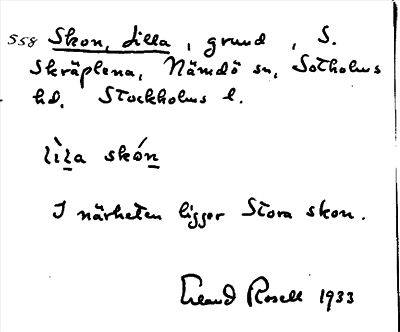 558 Skon, Lilla, grund, S.
Skräplena, Nämdö sn, Sotholms
hd, Stockholms l.
lìla skón
I närheten ligger Stora skon.
Erland Rosell 1933